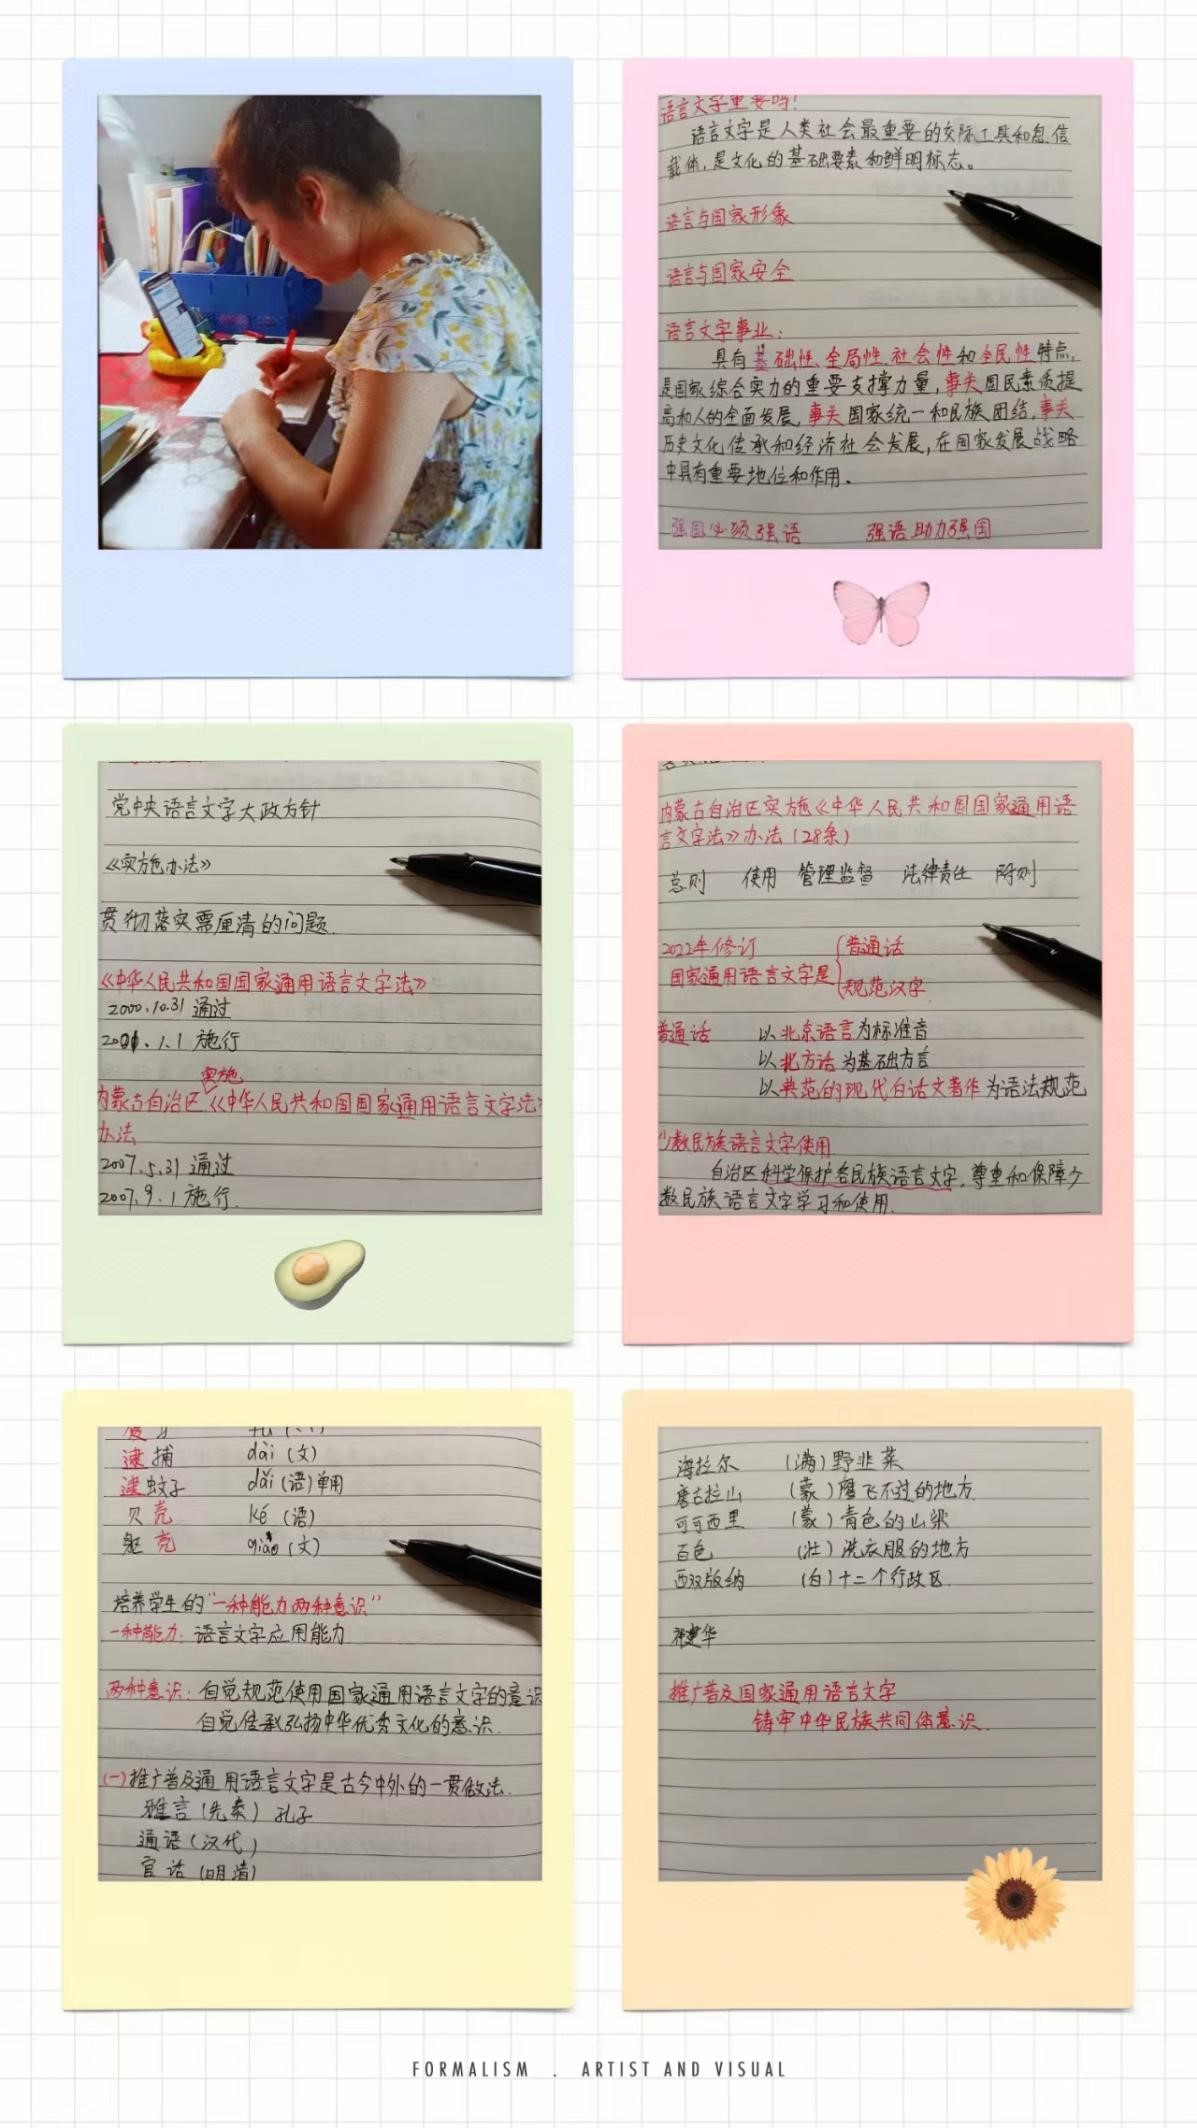 语言文字重要吗!
语言文字是人类社会最重要的交际工具和息信
载体,是文化的基础要素和鲜明标志。
语言与国家形象
语言与国家安全
语言文字事业:
具有基础性、全局性、社会性和全民性特点,
是国家综合实力的重要支撑力量,事关国民素质提
高和人的全面发展,事关国家统一和民族团结,事关
历史文化传承和经济社会发展,在国家发展战略
中具有重要地位和作用。
强国必须强语 强语助力强国
党中央语言文字大政方针
《实施办法》
贯彻落实需厘清的问题.
《中华人民共和国国家通用语言文字法》
2000.10.31 通过
2001.1.1 施行
实施
内蒙古自治区《中华人民共和国国家通用语言文字法》
办法
2007.5.31 通过
2007.9.1 施行.
内蒙古自治区实施《中华人民共和国国家通用语
言文字法》办法(28条)
总则 使用 管理监督 法律责任 附则
2022年修订 普通话
国家通用语言文字是
规范汉字
普通话 以北京语言为标准音
以北方话为基础方言
以典范的现代白话文著作为语法规范
少数民族语言文字使用
自治区科学保护各民族语言文字,尊重和保障少
数民族语言文字学习和使用.
逮捕 dài (文)
逮蚊子 dǎi (语)单用
贝壳 ké (语)
躯壳 qiào (文)
培养学生的"一种能力两种意识"
一种能力: 语言文字应用能力
两种意识: 自觉规范使用国家通用语言文字的意识
自觉传承弘扬中华优秀文化的意识.
(一)推广普及通用语言文字是古今中外的一贯做法.
雅言(先秦) 孔子
通语(汉代)
官话(明清)
海拉尔 (满)野韭菜
唐古拉山 (蒙)鹰飞不过的地方.
可可西里 (蒙)青色的山梁
百色 (壮)洗衣服的地方
西双版纳 (白)十二个行政区.
推广普及国家通用语言文字
铸牢中华民族共同体意识.
FORMALISM . ARTIST AND VISUAL